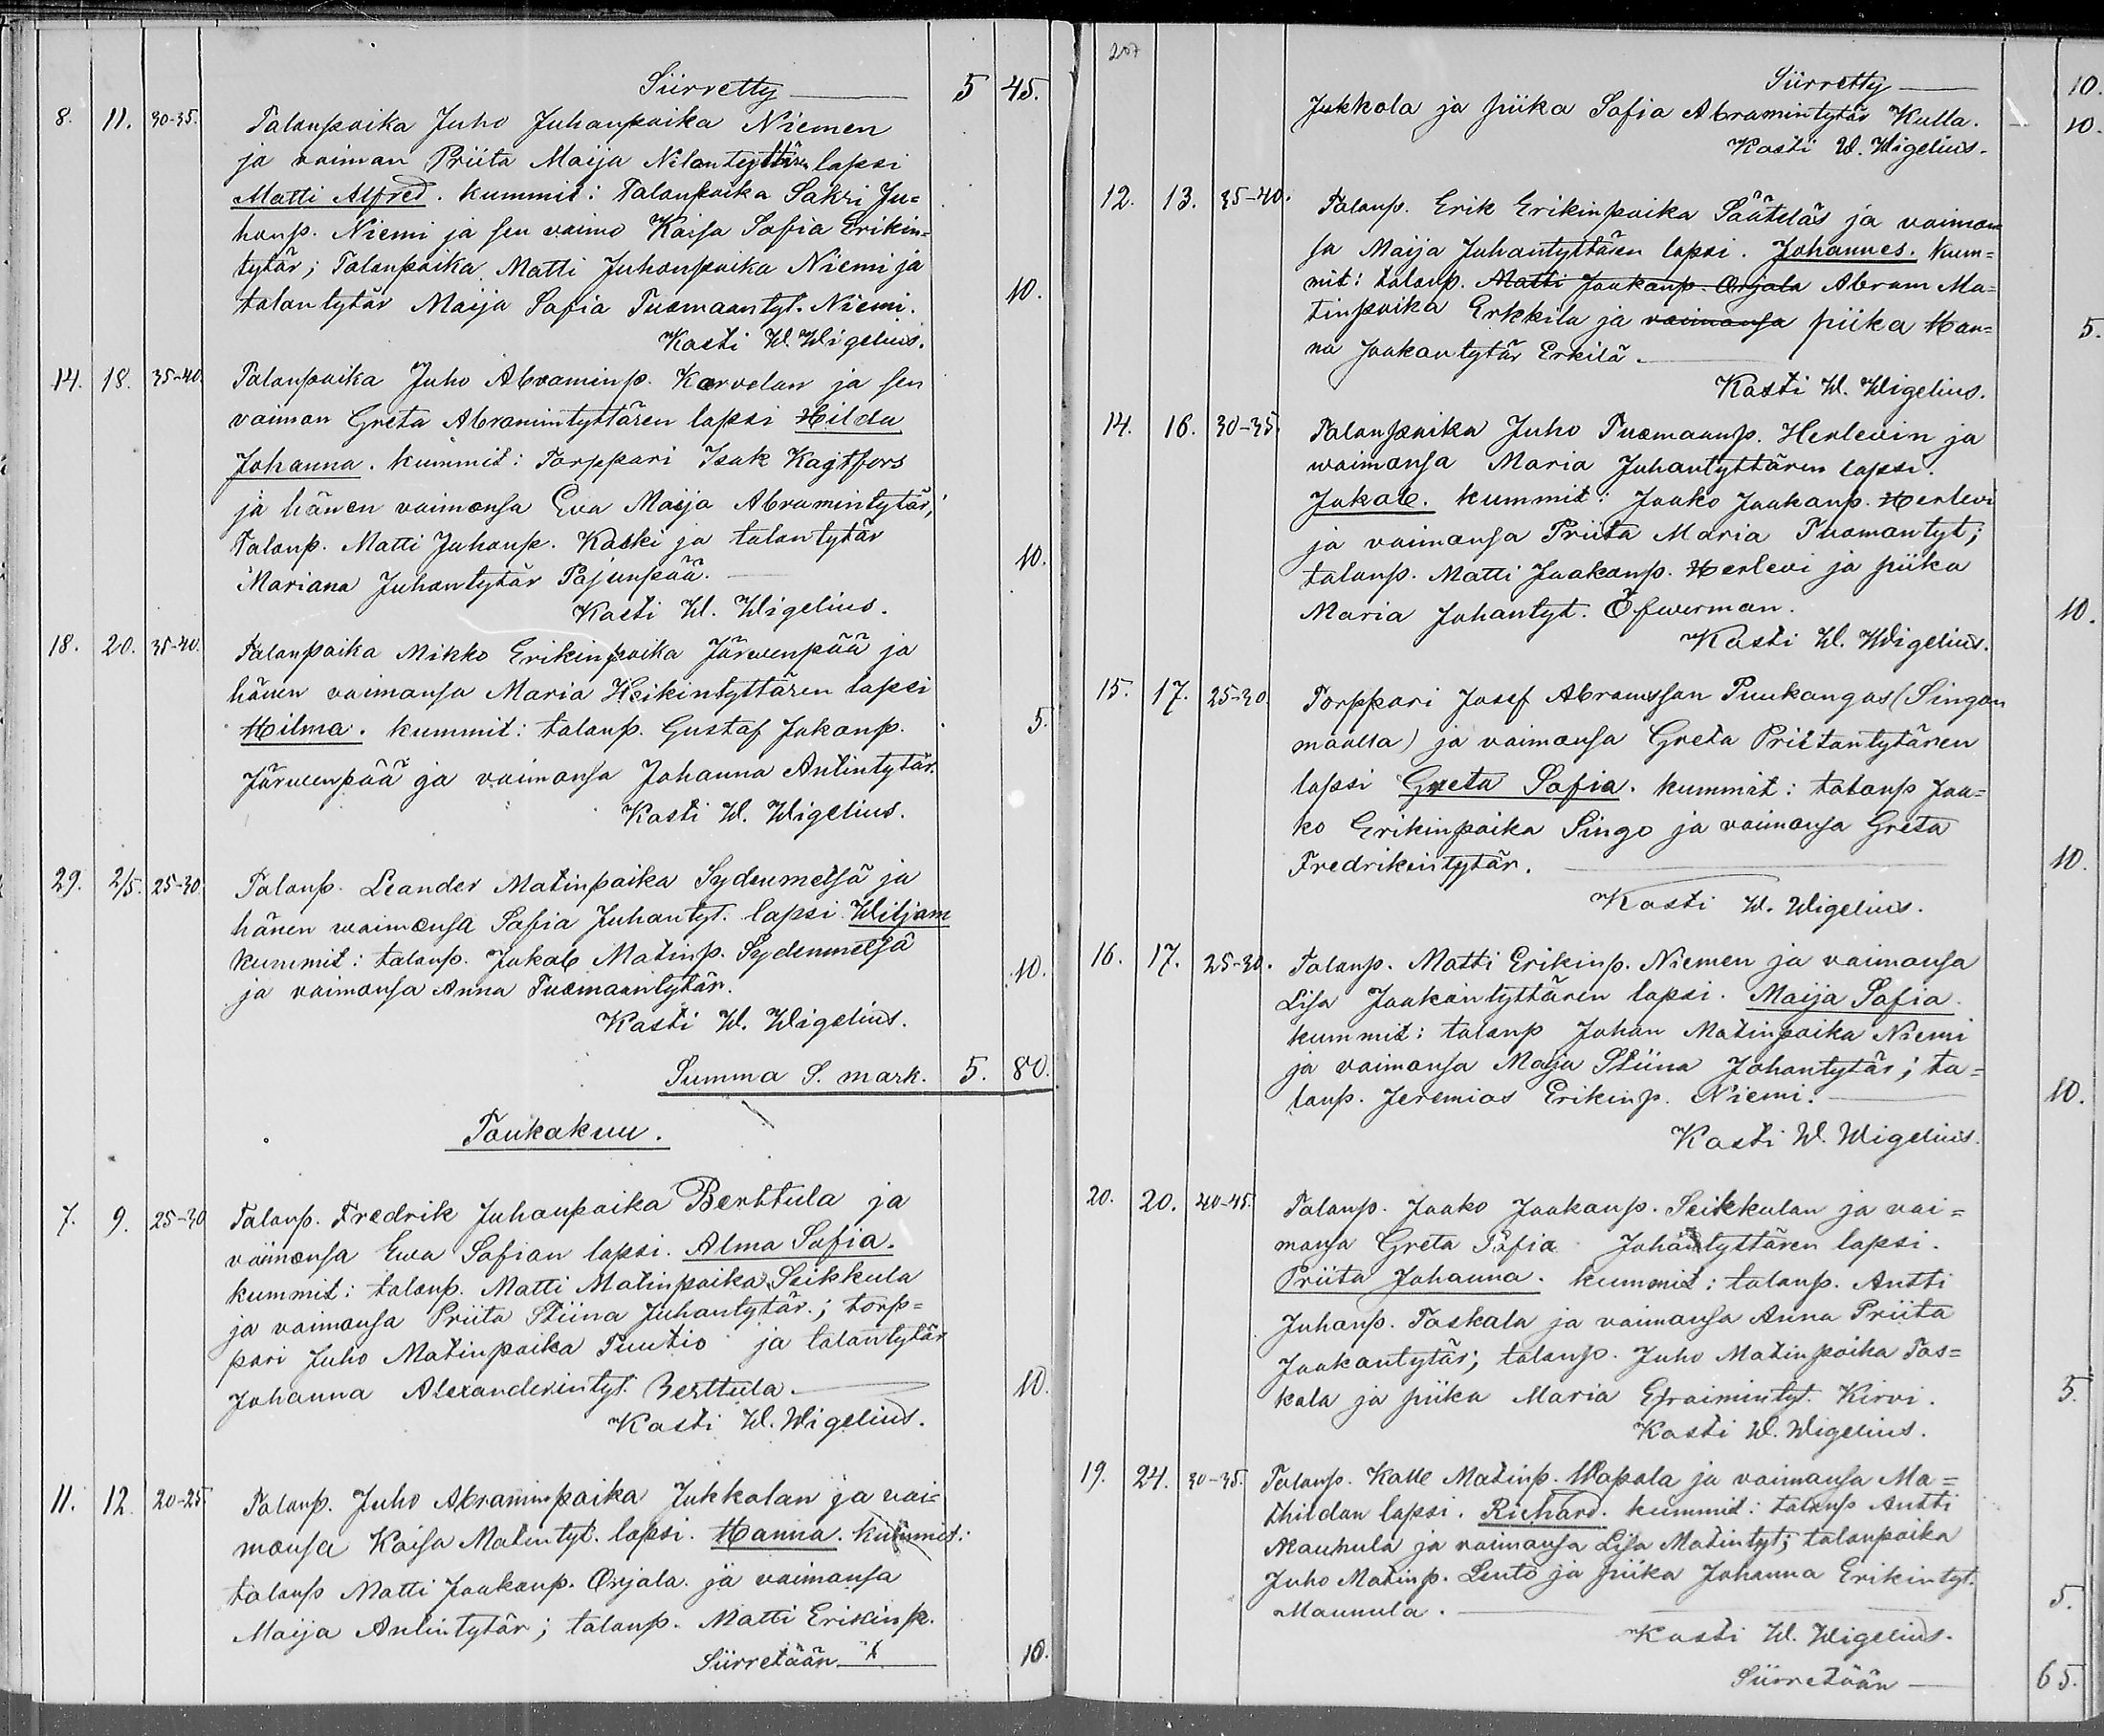 Siirretty 5 45.
8. 11. 30-35. Talonpoika Juho Juhanpoika Niemen
ja vaimon Priita Maija Nilantyttären lapsi
Matti Alfred. kummit: Talonpoika Sakri Ju=
hanp. Niemi ja sen vaimo Kaisa Sofia Erikin=
tytär; Talonpoika Matti Juhonpoika Niemi ja
talontytär Maija Sofia Tuomaantyt. Niemi. 10.
Kasti W. Wigelius.
14. 18. 35-40. Talonpoika Juho Abraminp. Karvolan ja sen
vaimon Greta Abramintyttären lapsi Hilda
Johanna. kummit: Torppari Isak Kagtfors
ja hänen vaimonsa Eva Maija Abramintytär;
Talonp. Matti Juhonp. Kaski ja talontytär
Mariana Juhontytär Pajunpää. 10.
Kasti W. Wigelius.
18. 20. 35-40. Talonpoika Mikko Erikinpoika Järwenpää ja
hänen vaimonsa Maria Heikintyttären lapsi
Hilma. kummit: talonp. Gustaf Jakonp. 5.
Järwenpää ja vaimonsa Johanna Antintytär.
Kasti W. Wigelius.
29. 2/5. 25-30. Talonp. Leander Matinpoika Sydenmetsä ja
hänen waimonsa Sofia Juhantyt. lapsi Wiljam
kummit: talonp. Jakob Matinp. Sydenmetsä
ja vaimonsa Anna Tuomaantytär. 10.
Kasti W. Wigelius.
Summa S. mark. 5. 80.
Toukokuu.
7. 9. 25-30 Talonp. Fredrik Juhanpoika Berttula ja
vaimonsa Ewa Sofian lapsi. Alma Sofia.
kummit: talonp. Matti Matinpoika Seikkula
ja vaimonsa Priita Stiina Juhantytär.; torp=
pari Juho Matinpoika Tuutio ja talantytär
Johanna Alexanderintyt. Berttula. 10.
Kasti W. Wigelius.
11. 12. 20-25. Talonp. Juho Abraminpoika Jukkolan ja vai=
monsa Kaisa Matintyt. lapsi. Hanna. kummit:
talonp Matti Jaakonp. Orjala. ja vaimonsa
Maija Antintytär; talonp. Matti Erikinp.
Siirretään 10.
207
Siirretty 10.
Jukkola ja piika Sofia Abramintytär Kulla. 10.
Kasti W. Wigelius.
12. 13. 35-40. Talonp. Erik Erikinpoika Sääteläs ja vaimon
sa Maija Juhantyttären lapsi. Johannes. kum=
mit: talonp. Matti Jaakonp. Orjala Abram Ma=
tinpoika Erkkila ja vaimonsa piika Han= 5.
na Jaakontytär Erkilä.
Kasti W. Wigelius.
14. 16. 30-35. Talonpoika Juho Tuomaanp. Herlevin ja
waimonsa Maria Juhantyttären lapsi.
Jakob. kummit: Jaako Jaakonp. Herlevi
ja vaimonsa Priita Maria Tuomantyt;
talonp. Matti Jaakonp. Herlevi ja piika
Maria Johantyt. Öfwerman. 10.
Kasti W. Wigelius.
15. 17. 25-30. Torppari Josef Abramsson Puukangas (Singon
maalla) ja vaimonsa Greta Priitantytären
lapsi Greta Sofia. kummit: talonp Jaa=
ko Erikinpoika Singo ja vaimonsa Greta
Fredrikintytär. 10.
Kasti W. Wigelius.
16. 17. 25-30. Talonp. Matti Erikinp. Niemen ja vaimonsa
Lisa Jaakontyttären lapsi. Maija Sofia.
kummit: talonp Johan Matinpoika Niemi
ja vaimonsa Maja Stiina Johantytär; ta=
lonp. Jeremias Erikinp. Niemi. 10.
Kasti W. Wigelius.
20. 20. 40-45. Talonp. Jaako Jaakonp. Seikkulan ja vai=
monsa Greta Sofia Johantyttären lapsi.
Priita Johanna. kummit: talonp. Antti
Juhanp. Taskala ja vaimonsa Anna Priita
Jaakontytär; talonp. Juho Matinpoika Tas=
kala ja piika Maria Efraimintyt. Kirvi. 5.
Kasti W. Wigelius.
19. 24. 30-35. Talonp. Kalle Matinp. Wapala ja vaimonsa Ma=
thildan lapsi. Richard. kummit: talonp Antti
Maunula ja vaimonsa Lisa Matintyt; talonpoika
Juho Matinp. Lento ja piika Johanna Erikintyt.
Maunula. 5.
Kasti W. Wigelius.
Siirretään 65.